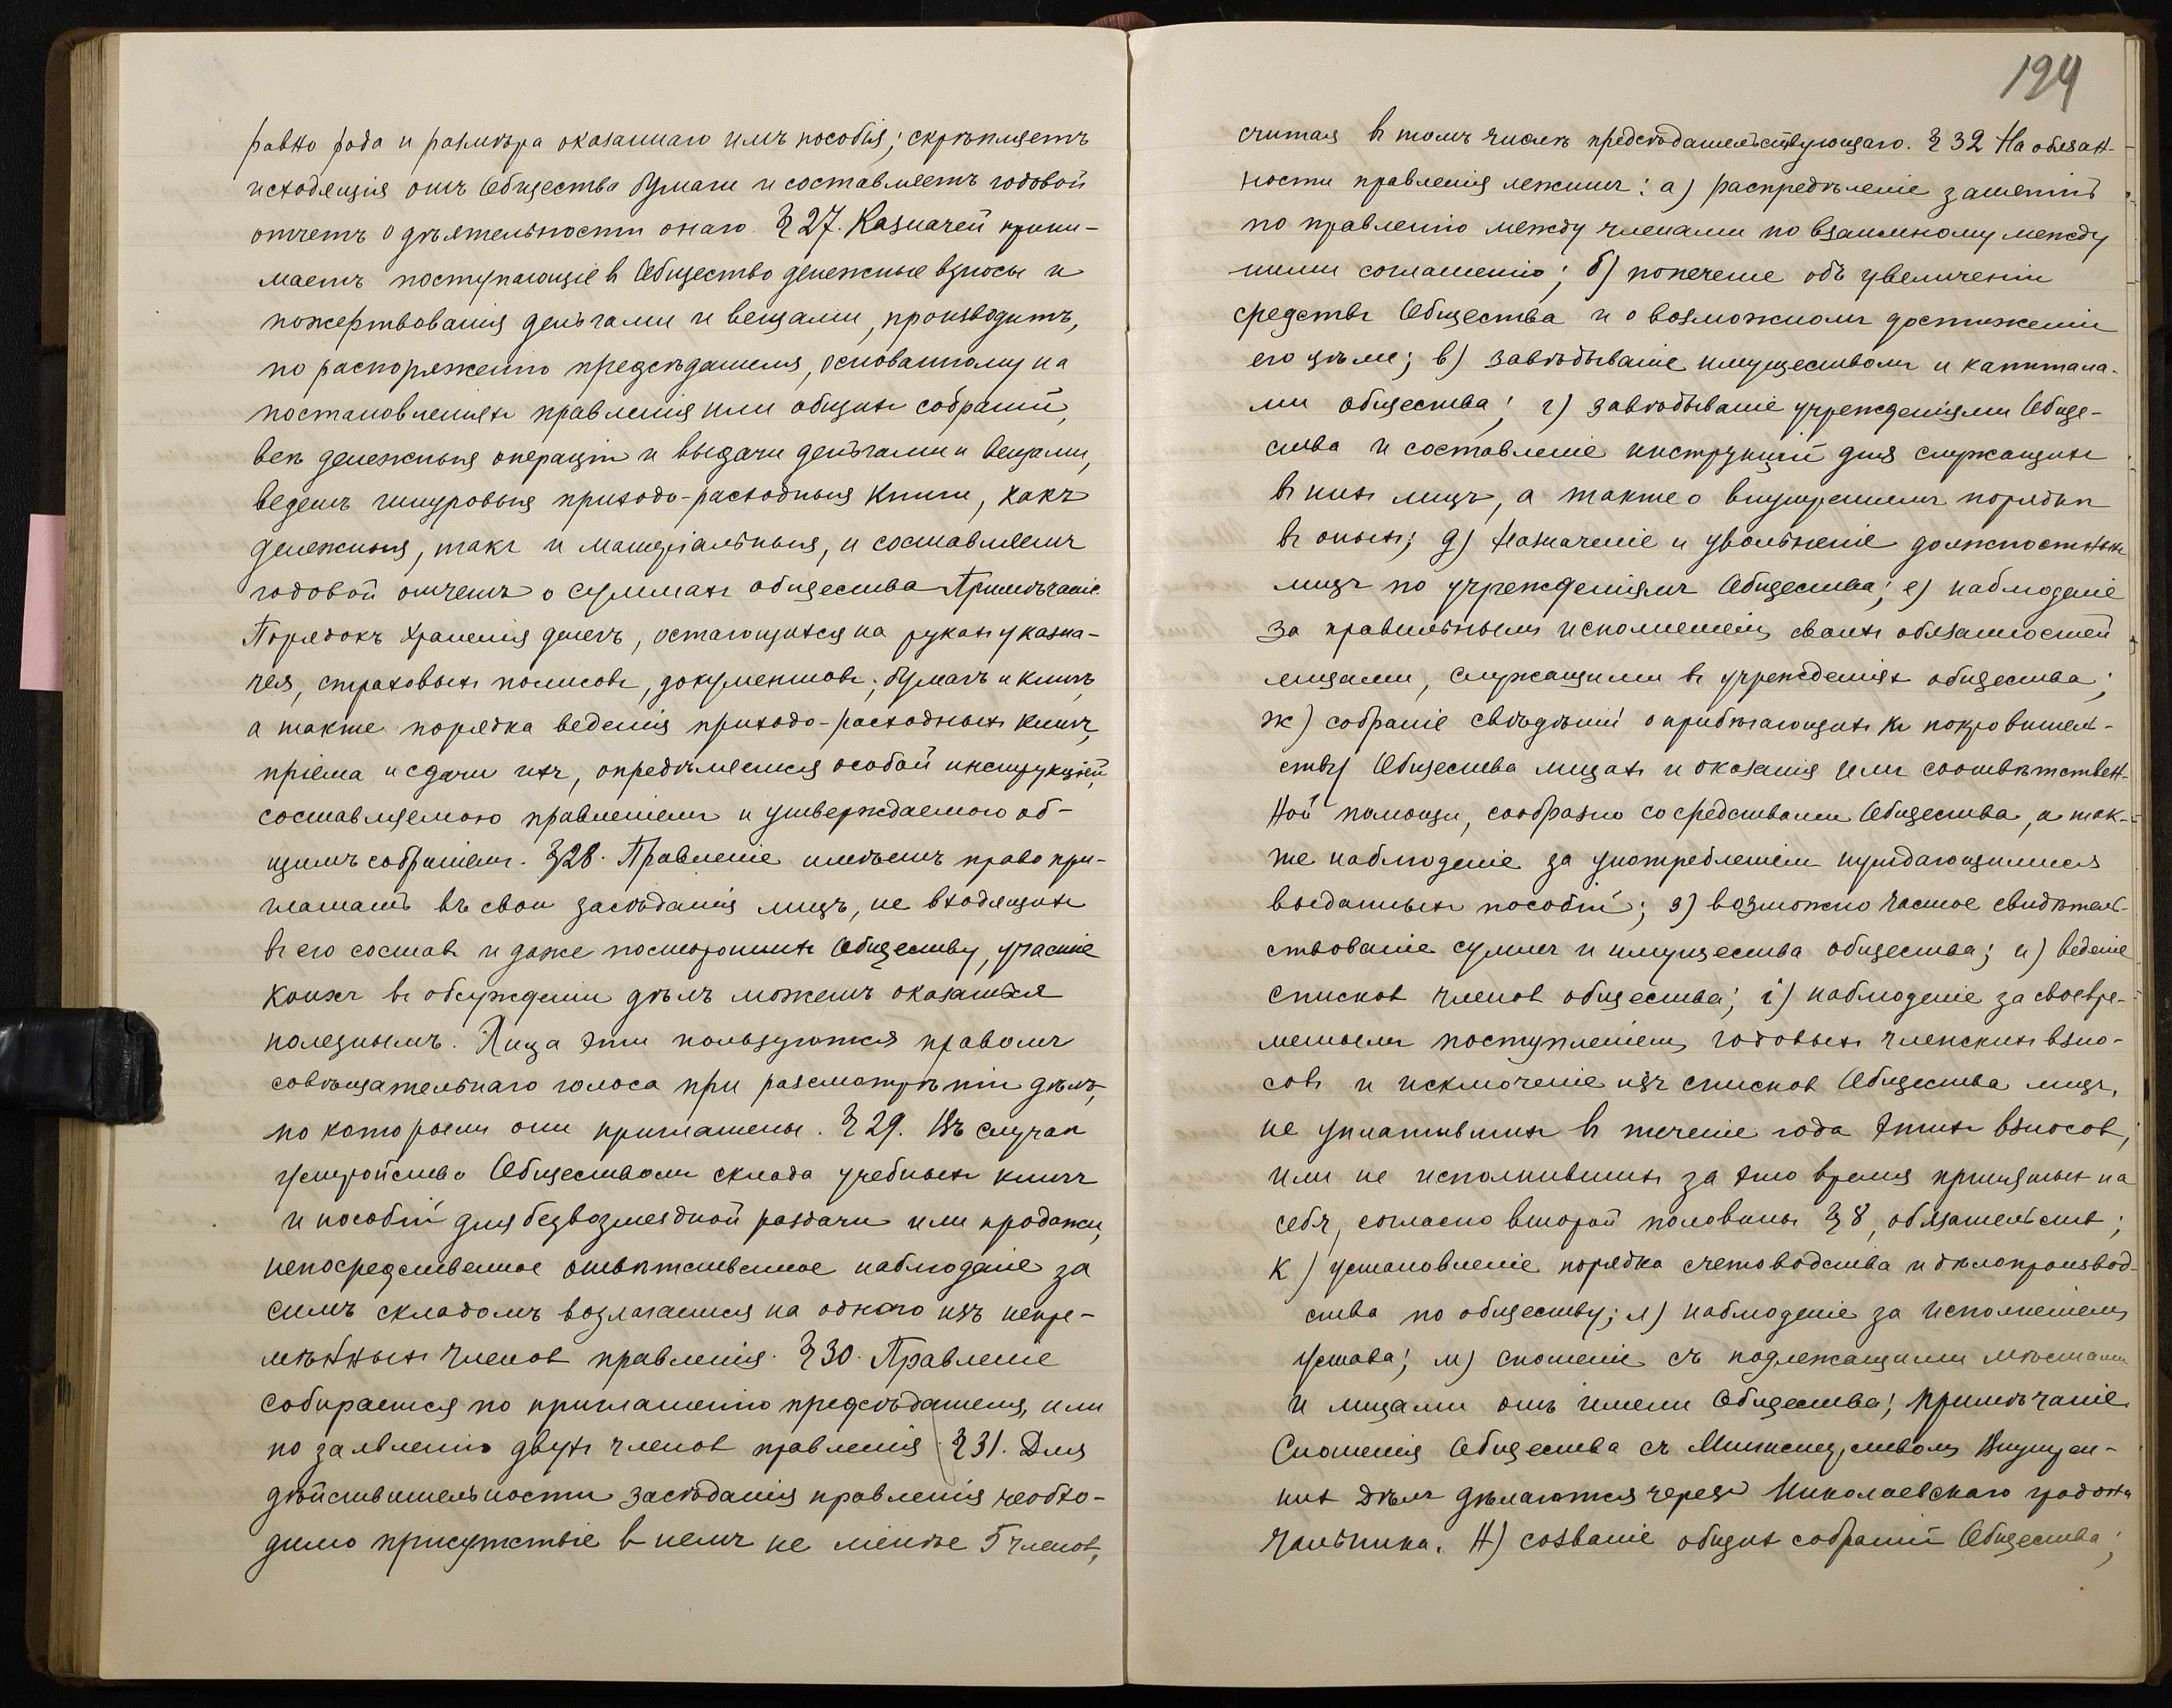 равно рода и размѣра оказаннаго имъ пособія; скрѣпляетъ
исходящія отъ Общества бумаги и составляетъ годовой
отчетъ о дѣятельности онаго. § 27. Казначей прини-
маетъ поступающіе въ Общество денежные взносы и
пожертвованія деньгами и вещами, производитъ,
по распоряженію предсѣдателя, основанному на
постановленіяхъ правленія или общихъ собраній,
всѣ денежныя операціи и выдачи деньгами и вещами,
ведетъ шнуровыя приходо-расходныя книги, какъ
денежныя, такъ и матеріальныя, и составляетъ
годовой отчетъ о суммахъ общества Примѣчаніе.
Порядокъ храненія денегъ, остающихся на рукахъ у казна-
чея, страховыхъ полисовъ, документовъ, бумагъ и книгъ,
а также порядка веденія приходо-расходныхъ книгъ,
пріема и сдачи ихъ, опредѣляется особой инструкціей,
составляемою правленіемъ и утверждаемою об-
щимъ собраніемъ. § 28. Правленіе имѣетъ право при-
глашать въ свои засѣданія лицъ, не входящихъ
въ его составъ и даже постороннихъ Обществу, участіе
коихъ въ обсужденіи дѣлъ можетъ оказаться
полезнымъ. Лица эти пользуются правомъ
совѣщательнаго голоса при разсмотрѣніи дѣлъ,
по которымъ они приглашены. § 29. Въ случаѣ
устройства Обществомъ склада учебныхъ книгъ
и пособій для безвозмездной раздачи или продажи,
непосредственное отвѣтственное наблюденіе за
симъ складомъ возлагается на одного изъ непре-
мѣнныхъ членовъ правленія. § 30. Правленіе
собирается по приглашенію предсѣдателя, или
по заявленію двухъ членовъ правленія § 31. Для
дѣйствительности засѣданія правленія необхо-
димо присутствіе въ немъ не менѣе 5 членовъ,
194
считая въ томъ числѣ предсѣдательствующаго. § 32 На обязан-
ности правленія лежитъ: а) распредѣленіе занятій
по правленію между членами по взаимному между
ними соглашенію; б) попеченіе объ увеличеніи
средствъ Общества и о возможномъ достиженіи
его цѣли; в) завѣдываніе имуществомъ и капитала-
ми общества; г) завѣдываніе учрежденіями Обще-
ства и составленіе инструкцій для служащихъ
въ нихъ лицъ, а также о внутреннемъ порядкѣ
въ оныхъ; д) назначеніе и увольненіе должностныхъ
лицъ по учрежденіямъ Общества; е) наблюденіе
за правильнымъ исполненіемъ своихъ обязанностей
лицами, служащими въ учрежденіяхъ общества;
ж) собраніе свѣдѣній о прибѣгающихъ къ покровитель-
ству Общества лицахъ и оказанія имъ соотвѣтствен-
ной помощи, сообразно со средствами Общества, а так-
же наблюденіе за употребленіемъ нуждающимися
выданныхъ пособій; з) возможно частое свидѣтель-
ствованіе суммъ и имущества общества; и) веденіе
списковъ членовъ общества; і) наблюденіе за своевре-
меннымъ поступленіемъ годовыхъ членскихъ взно-
совъ и исключеніе изъ списковъ Общества лицъ,
не уплатившихъ въ теченіе года этихъ взносовъ,
или не исполнившихъ за это время принятыхъ на
себя, согласно второй половины § 8, обязательствъ;
к) установленіе порядка счетоводства и дѣлопроизвод-
ства по обществу; л) наблюденіе за исполненіемъ
устава; м) сношеніе съ подлежащими мѣстами
и лицами отъ имени Общества; примѣчаніе
Сношенія Общества съ Министерствомъ Внутрен-
нихъ Дѣлъ дѣлаются черезъ Николаевскаго градона
чальника. н) созваніе общихъ собраній Общества;